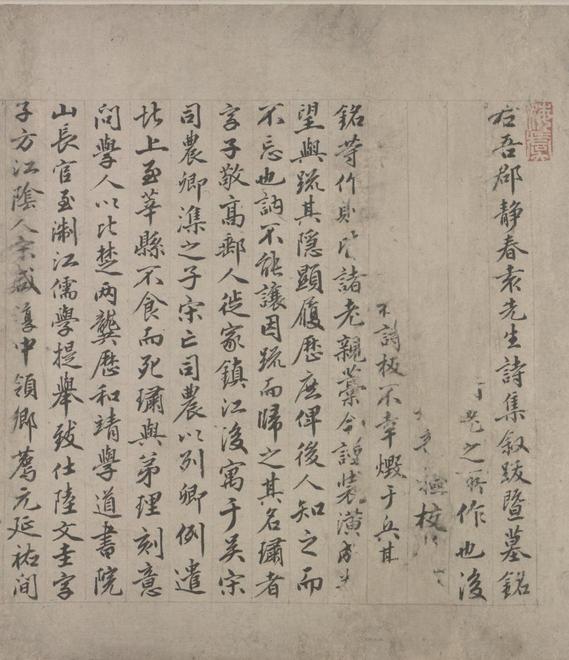 右吾郡靜春袁先生詩集叙跋暨墓銘
老之所作也後
極校
不詩板不幸燬于兵其
銘等作則皆諸老親藁今謹裝潢成
望與疏其隱顯履歷庶俾後人知之而
不忘也訥不能讓因疏而歸之其名璛者
字子敬高郵人徙家鎮江後寓于吳宋
司農卿潗之子宋亡司農以列卿例遣
北上至莘縣不食而死璛與弟理刻意
問學人以比楚兩龔歷和靖學道書院
山長官至淛江儒學提舉致仕陸文圭字
子方江陰人宋咸淳中領鄉薦元延祐間